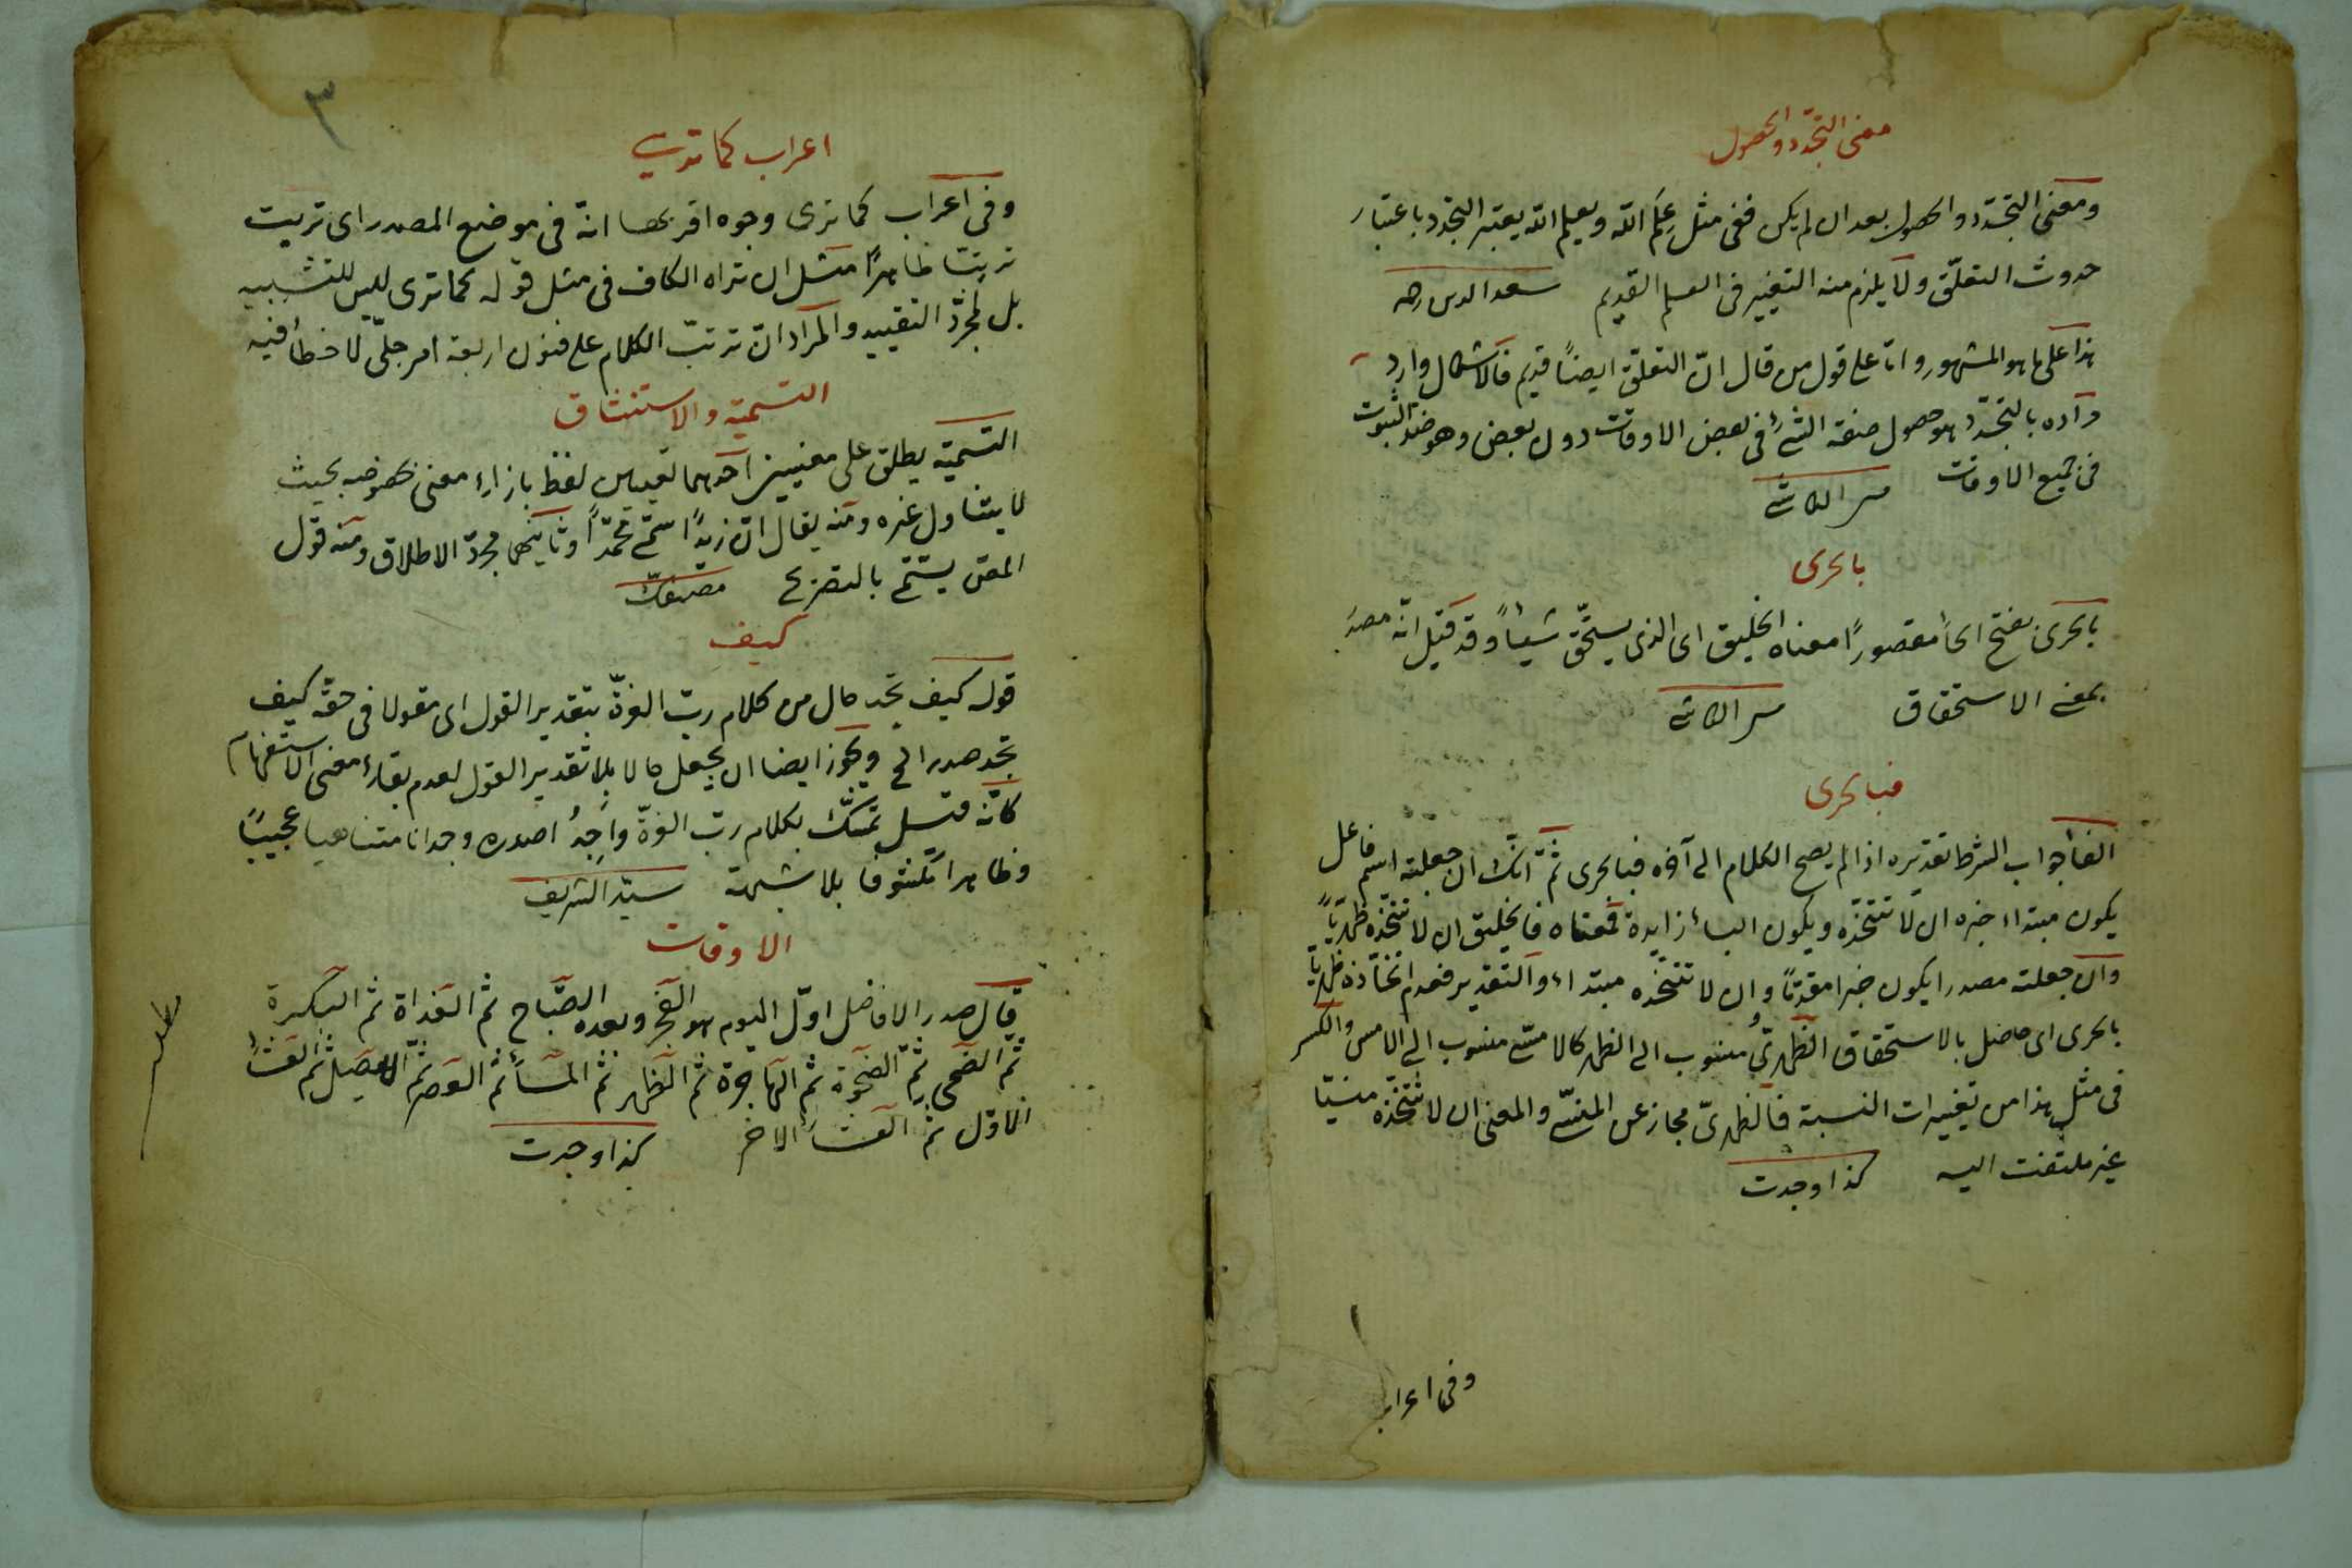 معنى التجدّد والحصول
ومعنى التجدّد والحصول بعد ان لم يكن ففى مثل عِلَم الله ويعلم الله يعتبر التجدد باعتبار
حدوث التعلّق ولا يلزم منه التغيير فى العلم القديم سعد الدين رحمه
هذا على ما هو المشهور وامّا على قول من قال انّ التعلّق ايضاً قديم فالاشكال وارد
مراده بالتجدّد هو حصول صفة الشئ فى بعض الاوقات دون بعض وهو ضدّ الثبوت
فى جميع الاوقات
بالحرى
بالحرى بفتح الحاء مقصوراً معناه الخليق اى الذى يستحّق شيئاً وقد قيل انّه مصدر
بمعنى الاستحقاق
فبالحرى
الفاء جواب الشرط تقديره اذا لم يصح الكلام الى آخره فبالحرى ثمّ انّك ان جعلته اسم فاعل
يكون مبتداء خبره ان لا تتخّذه ويكون الباء زايدة فمعناه فالخليق ان لا تتخّذه ظهريّاً
وان جعلته مصدرا يكون خبرا مقدّماً وان لا تتخّذه مبتداء والتقدير فعدم اتخّاذه ظهريّاً
بالحرى اى حاصل بالاستحقاق الظهرىّ منسوب الى الظهر كالامسّى منسوب الى الامس والكسر
فى مثل هذا من تغييرات النسبة فالظهرىّ مجاز عن المنسّى والمعنى ان لا تتخّذه منسيّا
غير ملتفت اليه كذا وجدت
وفى اعراب
٣
اعراب كما ترى
وفى اعراب كما ترى وجوه اقربها انّه فى موضع المصدر اى تربّت
تربّتا ظاهراً مثل ان تراه الكاف فى مثل قوله كما ترى ليس للتشبيه
بل لمجرّد التقييد والمراد انّ ترتبّ الكلام على فنون اربعة امر جلىّ لا خطأ فيه
التسمية والاستنشاق
التسمية يطلق على معنيين احدهما تعيين لفظ بازاء معنى بخصوصه بحيث
لا يتناول غيره ومنه يقال انّ زيداً اسمّى محمّداً وثانيهما مجردّ الاطلاق ومنه قول
المص يسمّى بالتصريح مصنفك
كيف
قوله كيف تجد حال من كلام ربّ العزّة بتقدير القول اى مقولا فى حقّه كيف
تجد صدر الخ ويجوز ايضا ان يجعل حالا بلا تقدير القول لعدم بقاء معنى الاستفهام
كانّه قيل تمسّك بكلام ربّ العزّة واجدُ اصدره وجدانا متناهيا عجيبّاً
وظاهرا مكشوفا بلا شبهة سيّد الشريف
الاوقات
قال صدر الافاضل اوّل اليوم هو الفجر وبعده الصّباح ثم الغداة ثم البكرة
ثمّ الضحى ثمّ الضحوة ثم الهاجرة ثم الظهر ثم المساء ثم العصر ثمّ الاصيل ثم العشاء
الاوّل ثم العشاء الاخر كذا وجدت